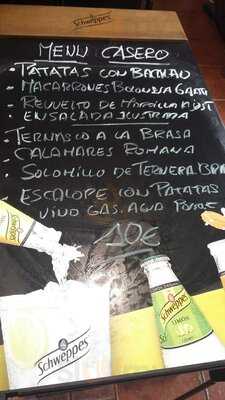 Schweppes
MENU CASERO
• PATATAS CON BACALAO
• MACARRONES BOLONESA GRATI
• REVUELTO DE MORCILLA Y JOST
• ENSALADA ILUSTRADA
• TERNASCO A LA BRASA
• CALAMARES ROMANA
• SOLOMILLO DE TERNERA BRA
ESCALOPE CON PATATAS
VINO GAS. AGUA POSTRE
10€
Schweppes
LIMÓN
Schweppes